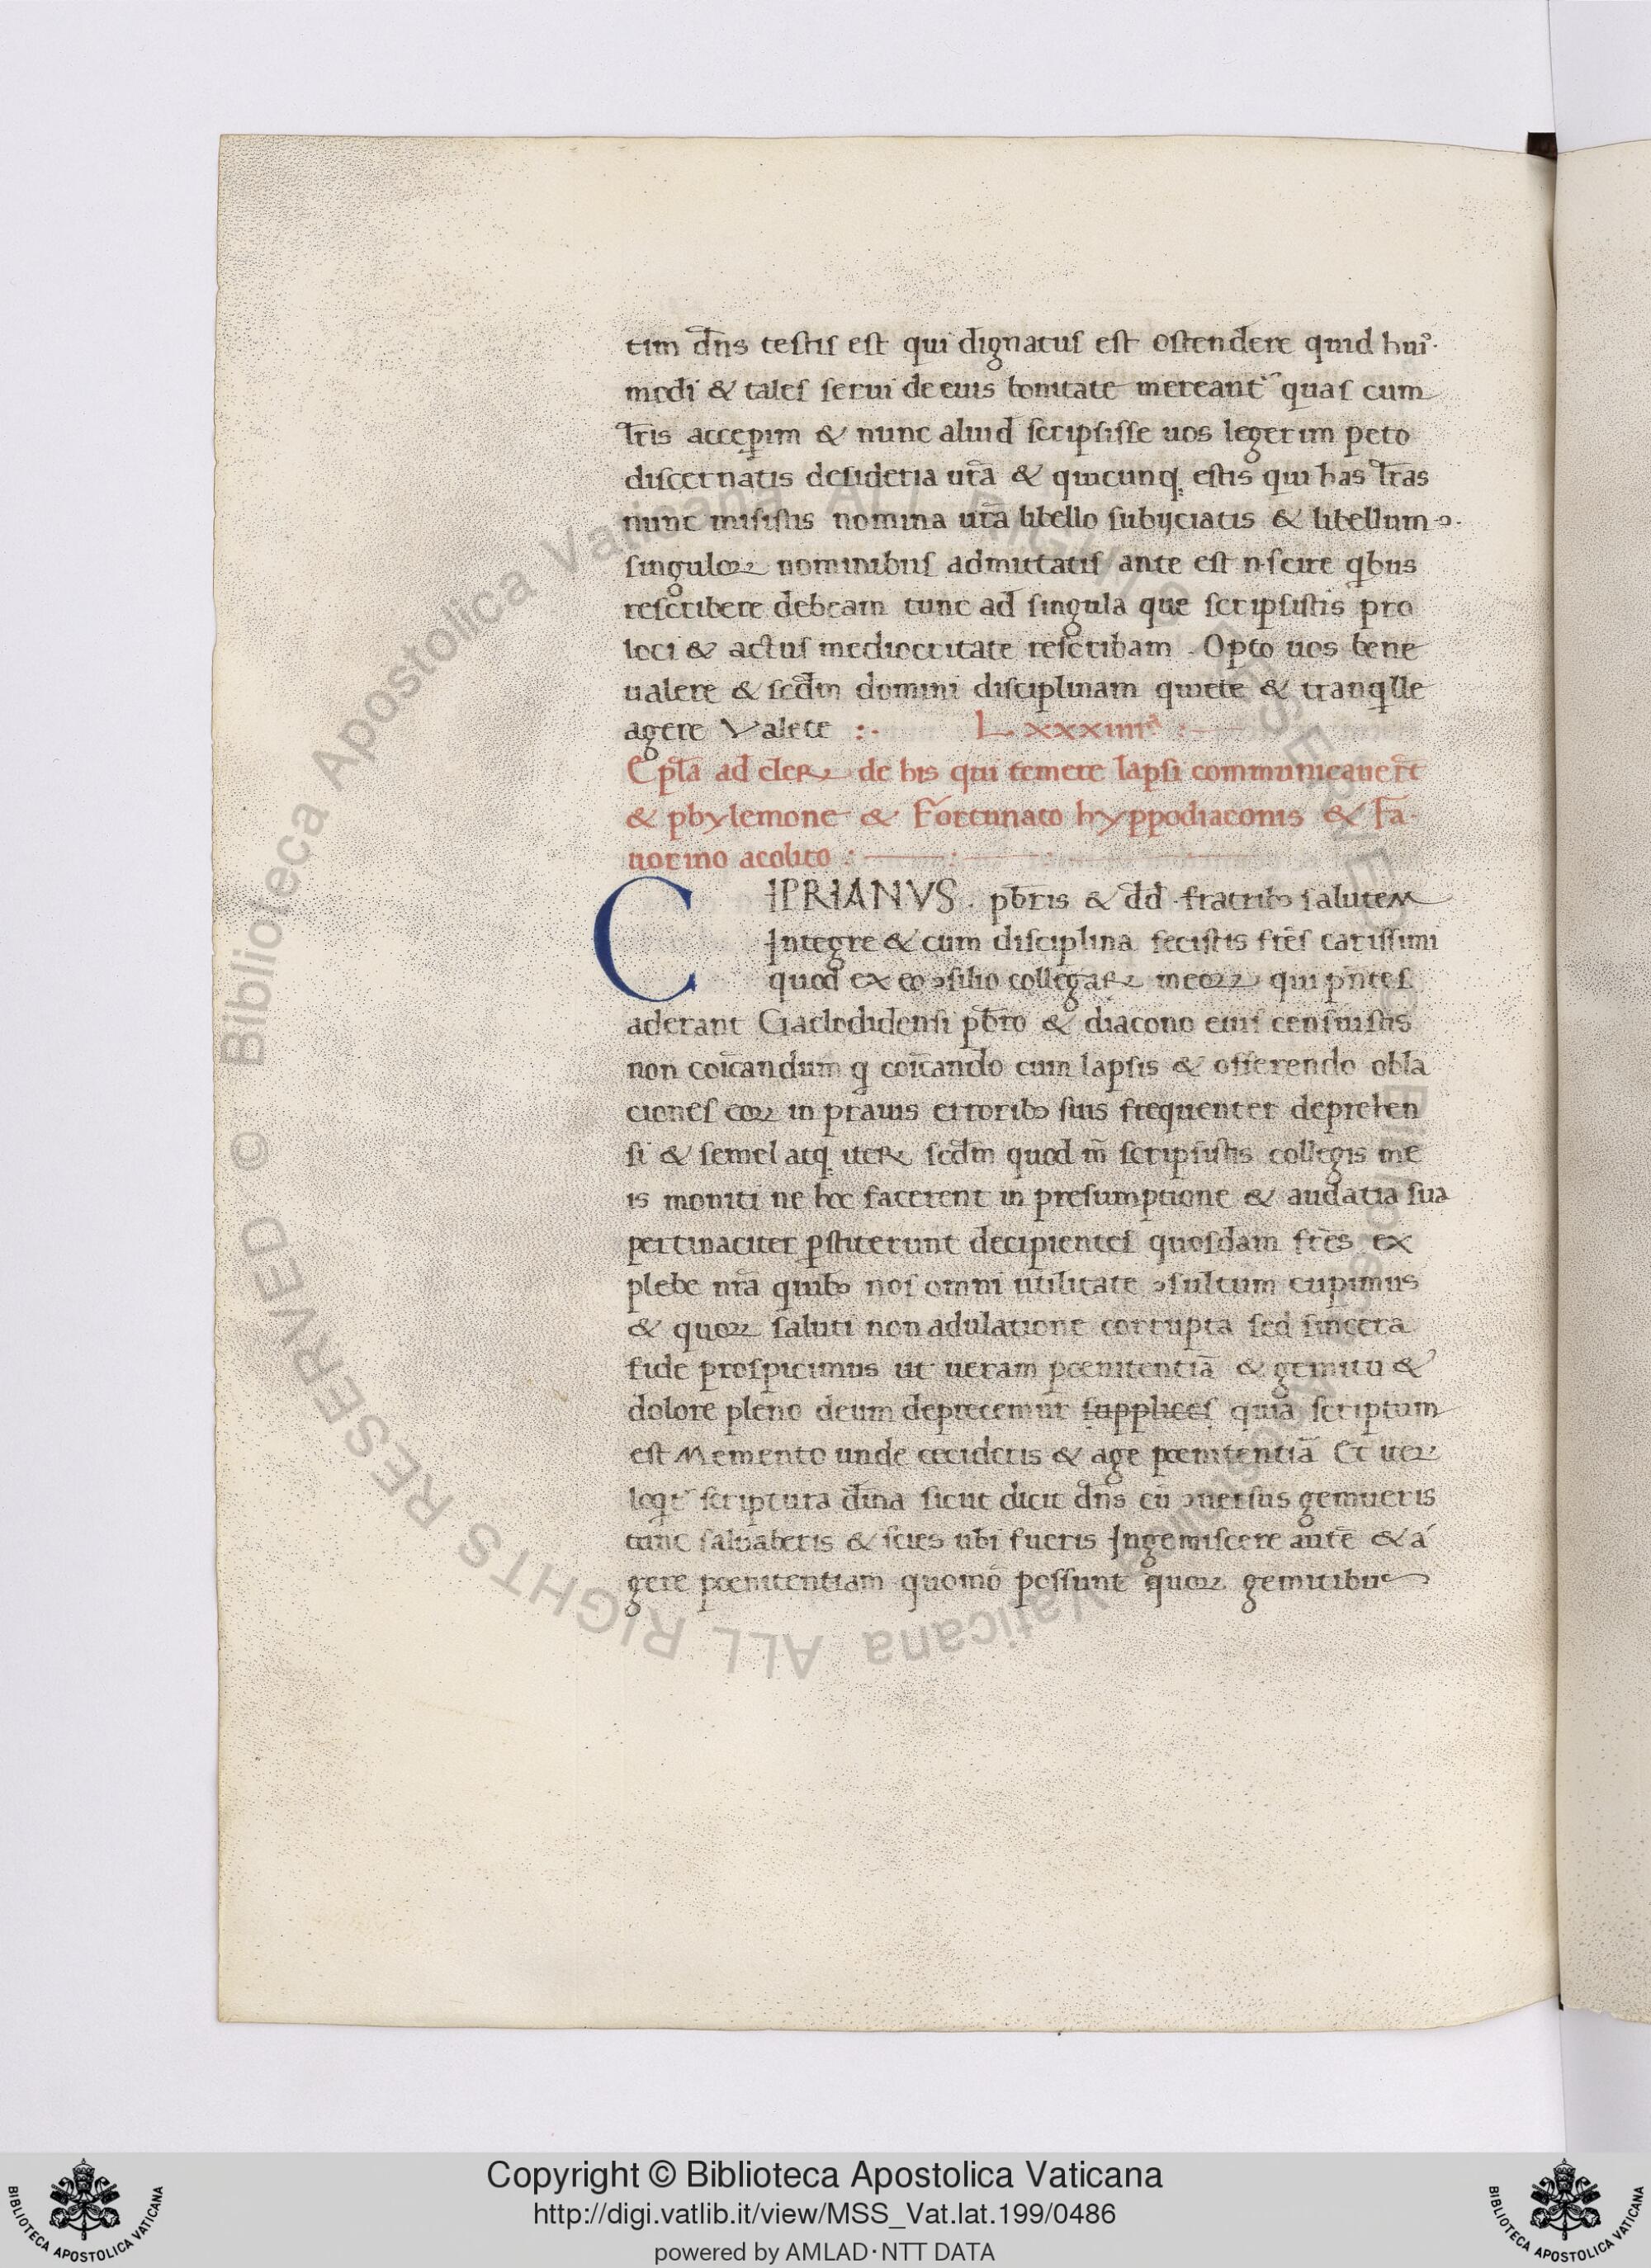 tim dn̄s testis est qui dignatus est ostendere quid hui᾿·
modi & tales serui de euis bonitate mereant᾿ quas cum
lr̄is acceꝑim & nunc aluid scripsisse uos legerim peto
discernatis desideria ur̄a & quicunqꝫ estis qui has lr̄as
nunc misistis nomina ur̄a libello subijciatis & libellum ꝯ·
singuloꝝ nominibus admittatis ante est n·scire qbus
rescribere debeam tunc ad singula que scripsistis pro
loci & actus mediocritate rescribam . Opto uos bene
ualere & scdm̄ domini disciplinam quiete & tranqlle
agere Valete :· LXXXIIIIᵃ :
Epl̄a ad cleꝝ de his qui temere lapsi communicauer̄t
& phylemone & Fortunato hyppodiaconis & Fa·
uorino acolito :
CIPRIANVS . pb̄ris & dd̄ · fratribꝫ salutem
Integre & cum disciplina fecistis fr̄es carissimi
quod ex eo ꝯsilio collegaꝝ meoꝝ qui pn̄tes
aderant Gaclodidensi pb̄ro & diacono eius censuistis
non coīcandum q coīcando cum lapsis & offerendo obla
ciones eoꝝ in prauis erroribꝫ suis frequenter deprehen
si & semel atqꝫ iteꝝ scdm̄ quod m̄ scripsistis collegis me
is moniti ne hoc facerent in presumptione & audatia sua
pertinaciter ꝑstiterunt decipientes quosdam fr̄es ex
plebe nr̄a quibꝫ nos omni utilitate ꝯsultum cupimus
& quoꝝ saluti non adulatione corrupta sed sincera
fide prospicimus ut ueram poenitentiā & gemitu &
dolore pleno deum deprecemur supplices quia scriptum
est Memento unde cecideris & age poenitentiā Et ueꝝ
loqt᾿ scriptura diīna sicut dicit dn̄s cū ꝯuersus gemueris
tunc saluaberis & scies ubi fueris Ingemiscere aut̄e & a
gere poenitentiam quomō possunt quoꝝ gemitibus
Copyright © Biblioteca Apostolica Vaticana
http://digi.vatlib.it/view/MSS_Vat.lat.199/0486
powered by AMLAD·NTT DATA
BIBLIOTECA APOSTOLICA VATICANA
BIBLIOTECA APOSTOLICA VATICANA
© Biblioteca Apostolica Vaticana ALL RIGHTS RESERVED
© Biblioteca Apostolica Vaticana ALL RIGHTS RESERVED